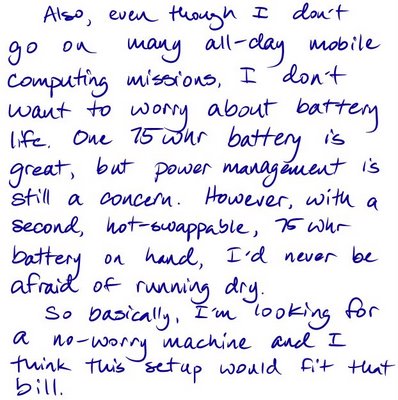 Also, even though I don't
go on many all-day mobile
computing missions, I don't
want to worry about battery
life. One 75 whr battery is
great, but power management is
still a concern. However, with a
second, hot-swappable, 75 whr
battery on hand, I'd never be
afraid of running dry.
So basically, I'm looking for
a no-worry machine and I
think this setup would fit that
bill.